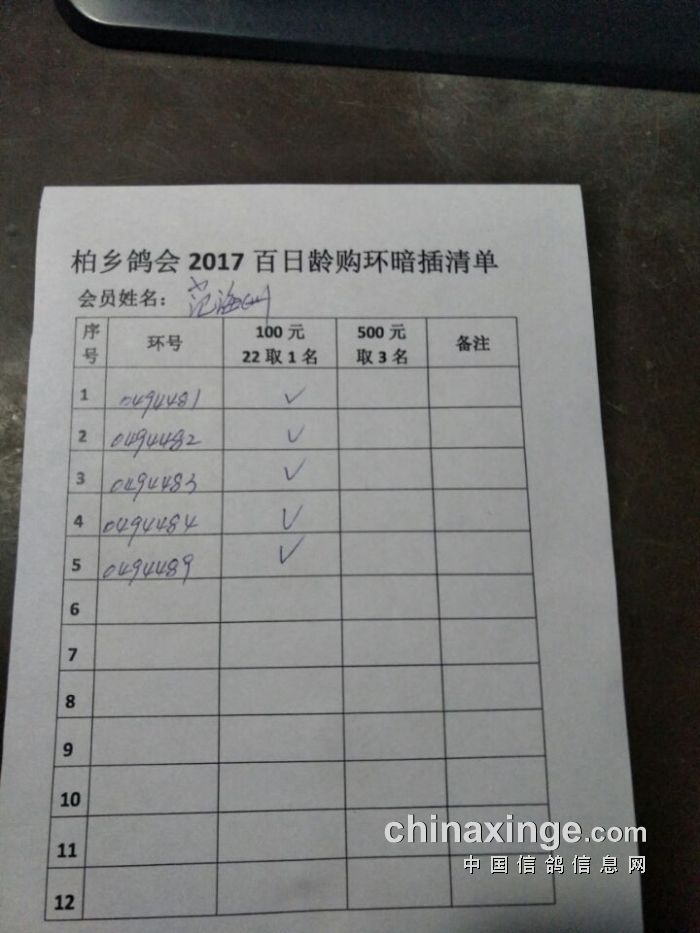 柏乡鸽会 2017 百日龄购环暗插清单
会员姓名： 范海山
序号 环号 100 元 22 取 1 名 500 元 取 3 名 备注
1 0494481 ✓
2 0494482 ✓
3 0494483 ✓
4 0494484 ✓
5 0494489 ✓
6
7
8
9
10
11
12
chinaxinge.com
中国信鸽信息网